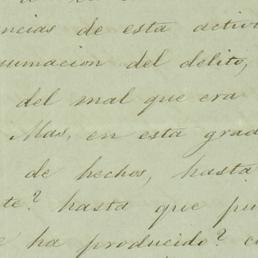 ncias de esta activi
sumacion del delito,
del mal que era
Mas, en esta grad
de hechos, hasta
te? hasta que pu
ha producido? c